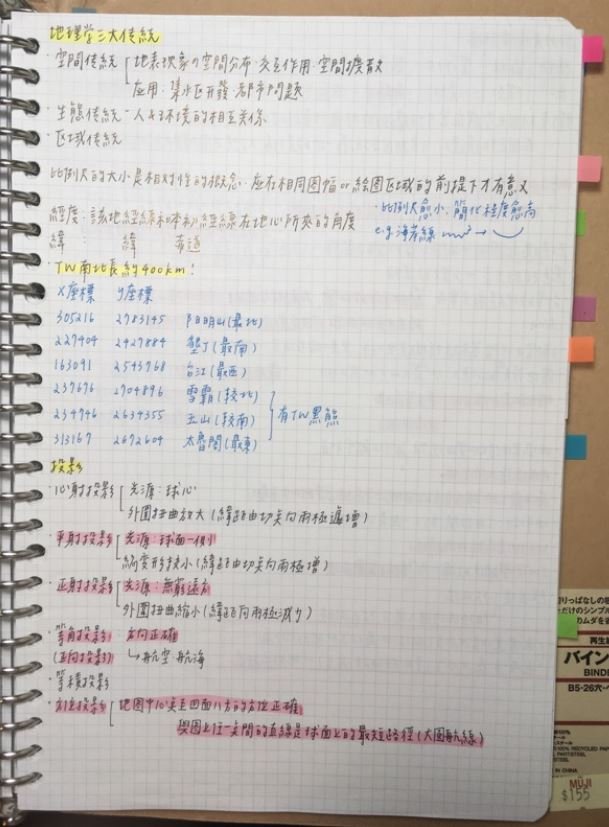 地理学三大传統
·空間传統 地表現象の空間分布·交互作用·空間擴散
应用:集水区开發·都市問題
·生態传統-人&环境的相互关係
·区域传統
比例尺的大小是相对性的概念,应在相同圖幅or繪圖区域的前提下才有意义
·比例尺愈小,簡化程度愈高
經度:該地經線和本初經線在地心所夾的角度
e.g.海岸線
緯: 緯 赤道
TW南北長約400km!
X座標 y座標
305216 2783145 阳明山(最北)
227404 2427884 墾丁(最南)
163091 2543768 台江(最西)
237676 2704896 雪霸(较北)
234746 2634355 玉山(较南)
有TW黑熊
313167 2672604 太魯閣(最東)
投影
·心射投影 光源:球心
外圍扭曲放大(緯距由切点向兩極遞增)
·平射投影 光源:球面一側
縮变形較小(緯距由切点向兩極增)
·正射投影 光源:無窮遠方
外圍扭曲縮小(緯距向兩極減少)
·等角投影 方向正確
(正向投影) ↳航空·航海
·等積投影
·方位投影 地圖中心点至四面八方的方位正確
與圖上任一点間的直線是球面上的最短路徑(大圓航線)
再生
バイン
BINDE
B5·26穴
100% RECYCLED PAP
IN CHINA
MUJI
$155